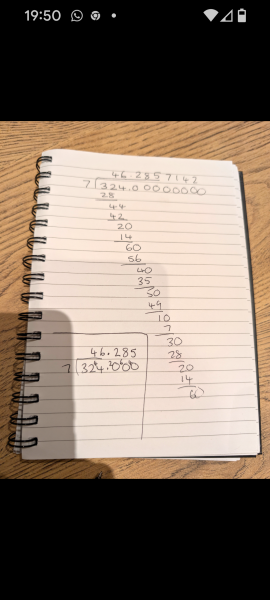 19:50
46.2857142
7 324.00000000
28
44
42
20
14
60
56
40
35
50
49
10
7
30
28
20
14
60
46.285
7 324.000